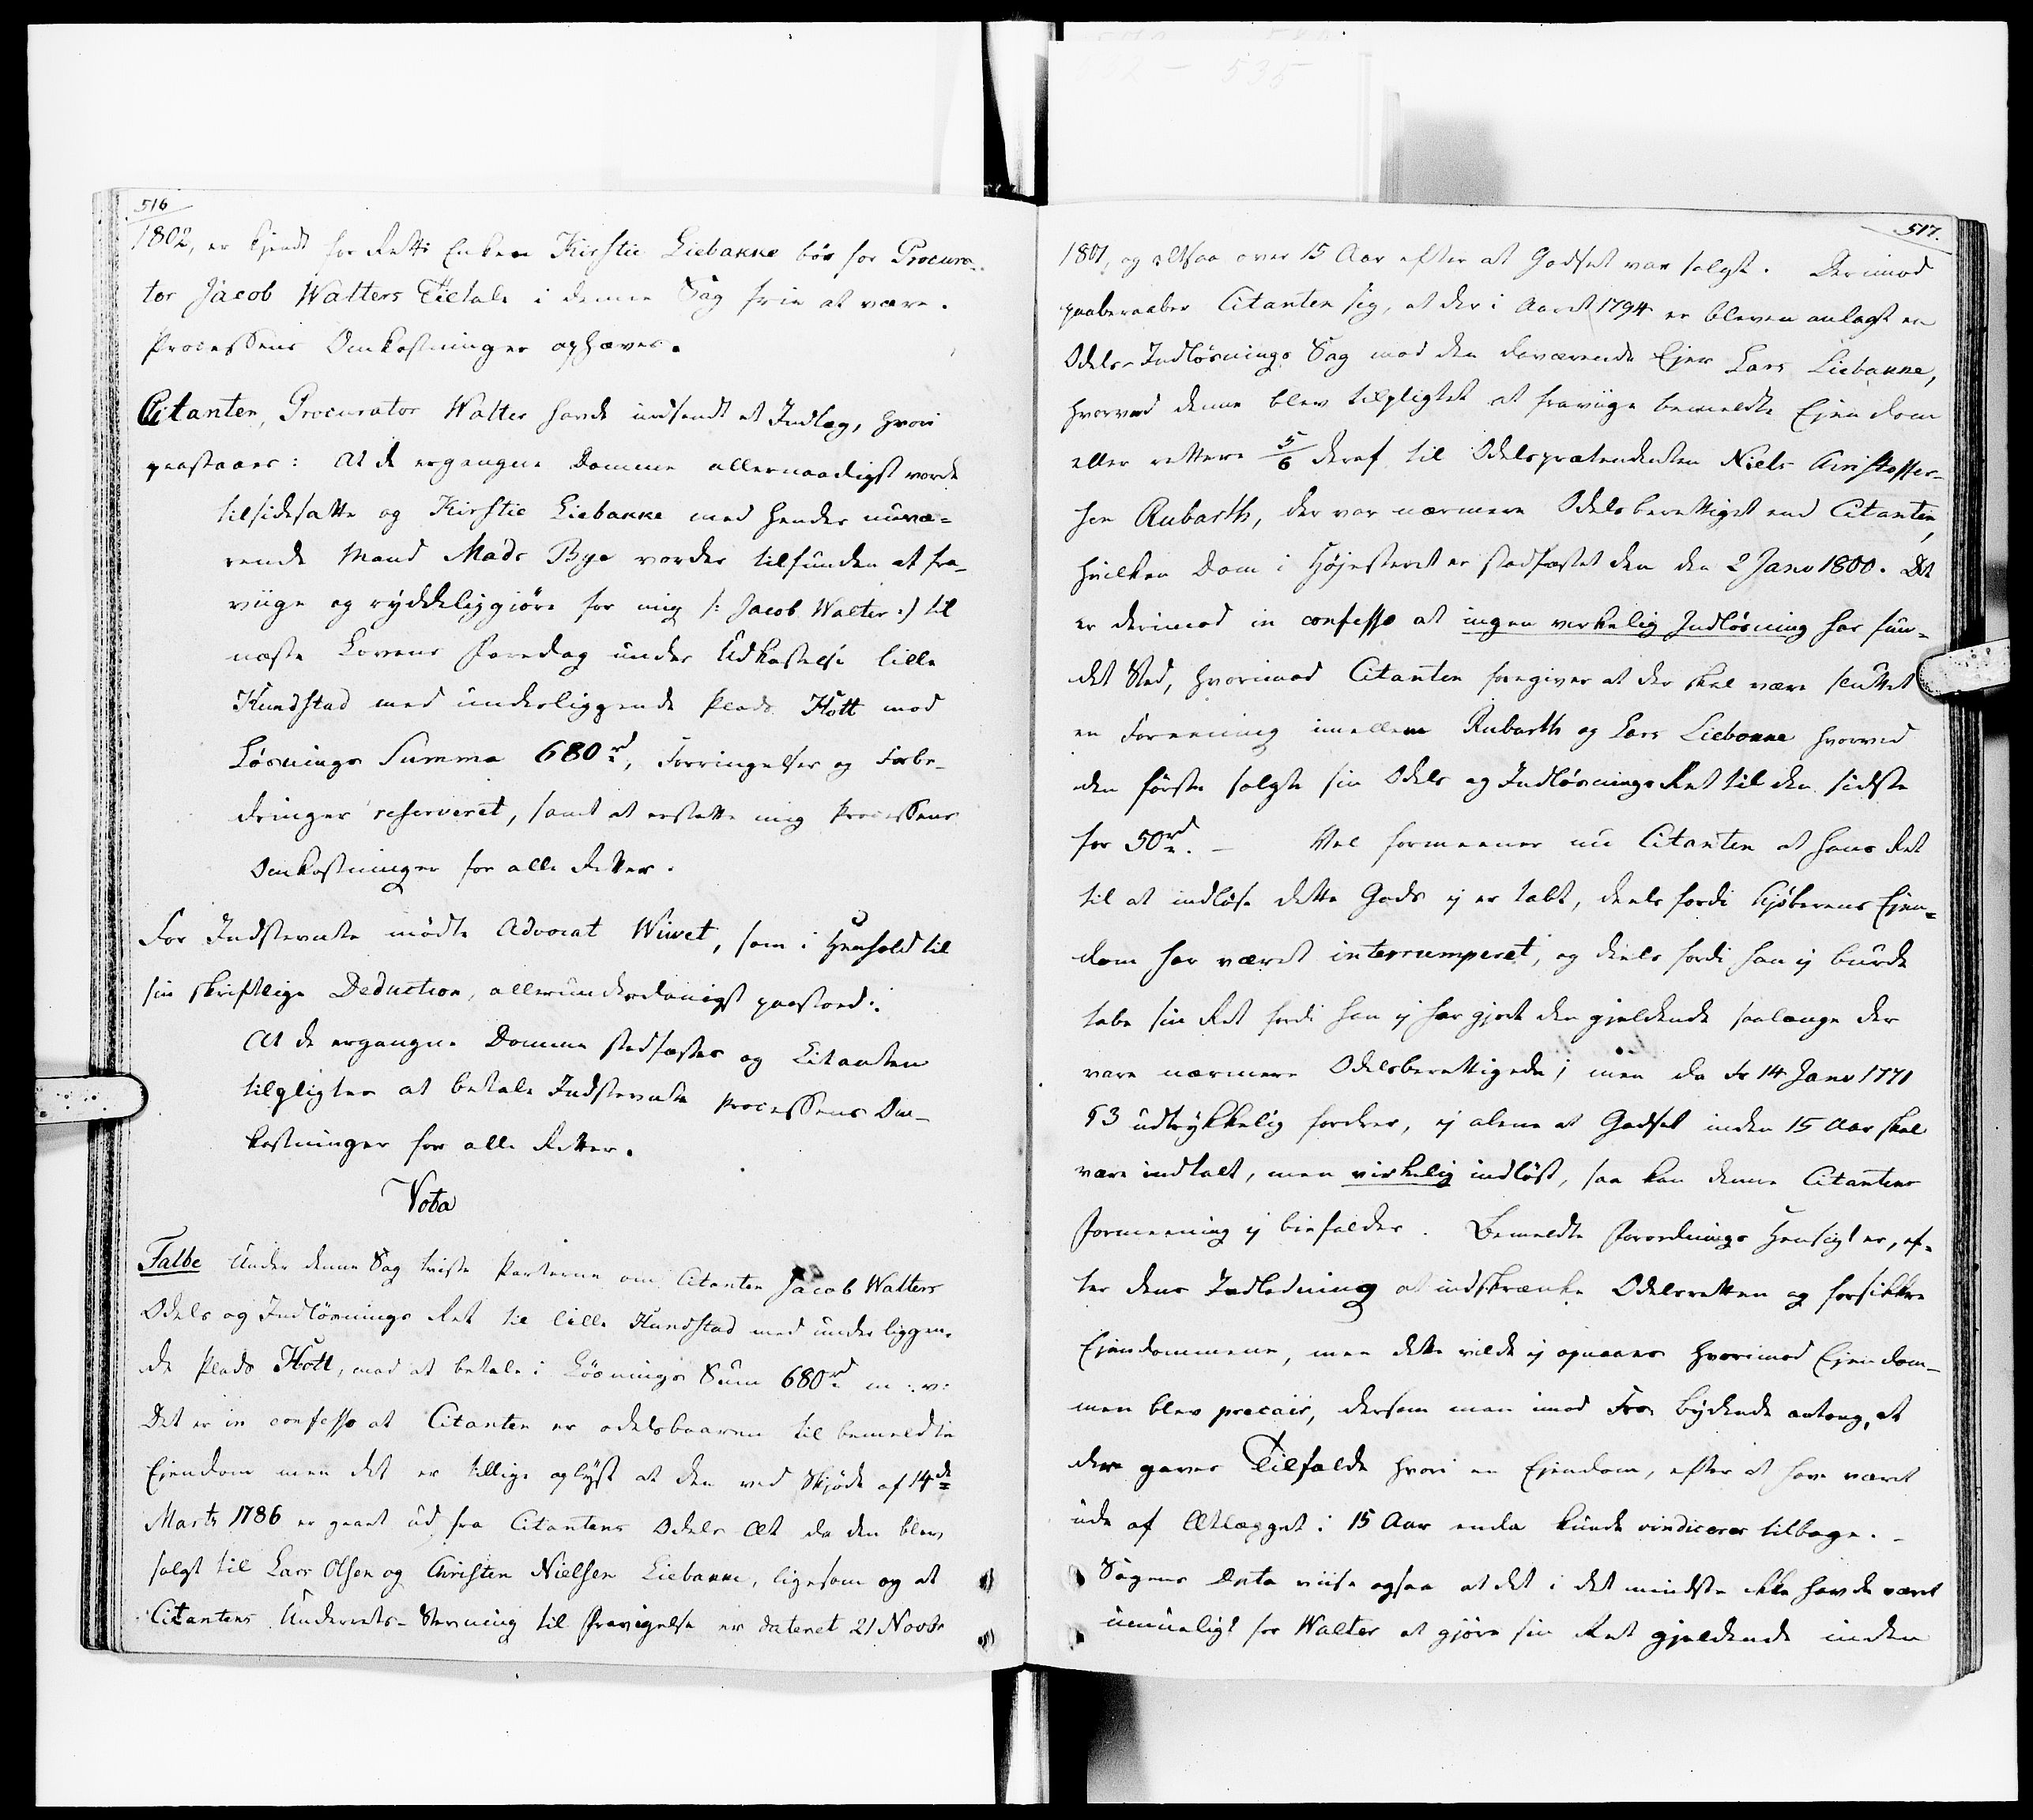 516
1802, er kjendt for Rett: Enken Kirstie Liebakke bör for Procura-
tor Jacob Walters Tiltale i denne Sag frie at være.
Processens Omkostninger ophæves.
Citanten, Procurator Walter havde indsendt et Indlæg, hvori
paastaaes: At de ergangne Domme allernaadigst vorde
tilsidesatte og Kirstie Liebakke med hendes nuvæ-
rende Mand Mads Bye vorder tilfunden at fra-
viige og ryddeliggiöre for mig /: Jacob Walter :/ til
næste Lovens faredag under Udkastelse lille
Kundstad med underliggende Plads Hott mod
Lösnings Summa 680 rd, Forringelser og Forbe-
dringer reserveret, samt at erstatte mig Processens
Omkostninger for alle Retter.
For Indstevnte mödte Advocat Wivet, som i Henhold til
sin skriftlige Deduction, allerunderdanigst paastoed:
At de ergangne Domme stadfæstes og Citanten
tilpligtes at betale Indstevnte Processens Om-
kostninger for alle Retter.
Vota
Falbe Under denne Sag tviste Parterne om Citanten Jacob Walters
Odels og Indlösnings Ret til lille Kundstad med underliggen-
de Plads Hott, mod at betale i Lösnings Sum 680 rd m: v:
Det er in confesso at Citanten er odelsbaaren til bemeldte
Eiendom men det er tillige oplyst at den ved Skjöde af 14de
Marts 1786 er gaaet ud fra Citantens Odels Æt da den blev
solgt til Lars Olsen og Christen Nielsen Liebakke, ligesom og at
Citantens Underrets-Stevning til Fravigelse er dateret 21 Novbr
517.
1801, og altsaa over 15 Aar efter at Godset var solgt. Derimod
paaberaaber Citanten sig, at der i Aaret 1794 er bleven anlagt en
Odels-Indlösnings Sag mod den daværende Ejer Lars Liebakke,
hvorved denne blev tilpligtet at fraviige bemeldte Ejendom
eller rettere 5/6 deraf til Odelsprætendenten Niels Christoffer-
sen Rubarth, der var nærmere Odelsberettiget end Citanten,
hvilken Dom i Højesteret er stadfæstet den 2 Janv 1800. Det
er derimod in confesso at ingen virkelig Indlösning har fun-
det Sted, hvorimod Citanten foregiver at der skal være sluttet
en Foreening imellem Rubarth og Lars Liebakke hvorved
den förste solgte sin Odels og Indlösnings Ret til den sidste
for 50 rd. – Vel formeener nu Citanten at hans Ret
til at indlöse dette Gods ej er tabt, deels fordi Kjöberens Ejen-
dom har været interrumperet, og deels fordi han ej burde
tabe sin Ret fordi han ej har gjort den gjeldende saalænge der
vare nærmere Odelsberettigede; men da Fr 14 Janv 1771
§3 udtrykkelig fordrer, ej alene at Godset inden 15 Aar skal
være indtalt, men virkelig indlöst, saa kan denne Citantens
Formeening ej biefaldes. Bemeldte Forordnings Hensigt er, ef-
ter dens Indledning at indskrænke Odelsretten og forsikkre
Ejendommene, men dette vilde ej opnaaes hvorimod Ejendom-
men blev precair, dersom man imod Frs bydende antog, at
der gaves Tilfælde hvori en Ejendom, efter at have været
ude af Ætlægget i 15 Aar endda kunde vindiceres tilbage. –
Sagens Data viise ogsaa at det i det mindste ikke havde været
umueligt for Walter at gjöre sin Ret gjeldende inden